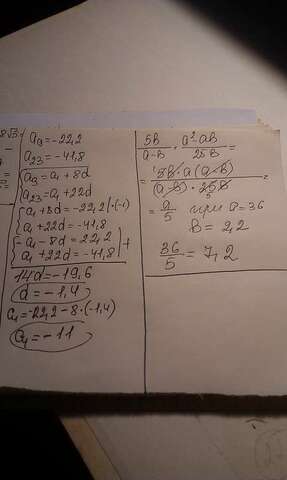 a₉ = -22,2
a₂₃ = -41,8
a₉ = a₁ + 8d
a₂₃ = a₁ + 22d
a₁ + 8d = -22,2 | · (-1)
a₁ + 22d = -41,8
a₁ - 8d = 22,2
a₁ + 22d = -41,8 | +
14d = -19,6
d = -1,4
a₁ = -22,2 - 8 · (-1,4)
a₁ = -11
5в/(a-в) · (a²-aв)/25в =
= 5в · a(a-в)/((a-в) · 25в) =
5
= a/5 при a = 36
в = 2,2
36/5 = 7,2